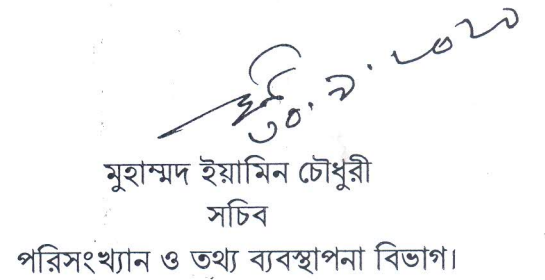 ৩০.৯.২০২০
মুহাম্মদ ইয়ামিন চৌধুরী
সচিব
পরিসংখ্যান ও তথ্য ব্যবস্থাপনা বিভাগ।